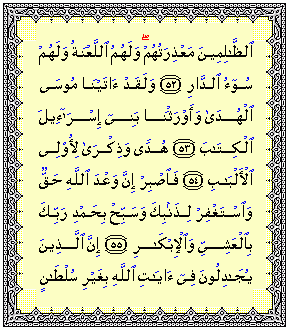 ٱلظَّـٰلِمِينَ مَعْذِرَتُهُمْ ۖ وَلَهُمُ ٱللَّعْنَةُ وَلَهُمْ
سُوٓءُ ٱلدَّارِ ﴿٥٢﴾ وَلَقَدْ ءَاتَيْنَا مُوسَى
ٱلْهُدَىٰ وَأَوْرَثْنَا بَنِىٓ إِسْرَٰٓءِيلَ
ٱلْكِتَـٰبَ ﴿٥٣﴾ هُدًى وَذِكْرَىٰ لِأُو۟لِى
ٱلْأَلْبَـٰبِ ﴿٥٤﴾ فَٱصْبِرْ إِنَّ وَعْدَ ٱللَّهِ حَقٌّ
وَٱسْتَغْفِرْ لِذَنۢبِكَ وَسَبِّحْ بِحَمْدِ رَبِّكَ
بِٱلْعَشِىِّ وَٱلْإِبْكَـٰرِ ﴿٥٥﴾ إِنَّ ٱلَّذِينَ
يُجَـٰدِلُونَ فِىٓ ءَايَـٰتِ ٱللَّهِ بِغَيْرِ سُلْطَـٰنٍ